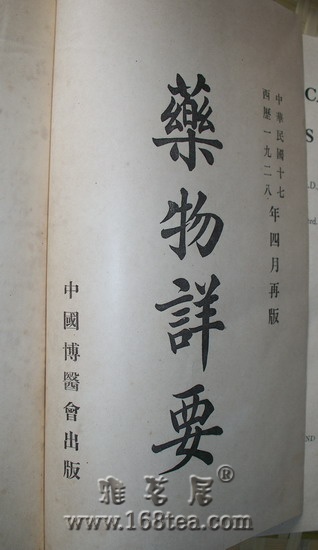 中華民國十七
西歷一九二八
年四月再版
藥物詳要
中國博醫會出版
雅茗居®
www.168tea.com